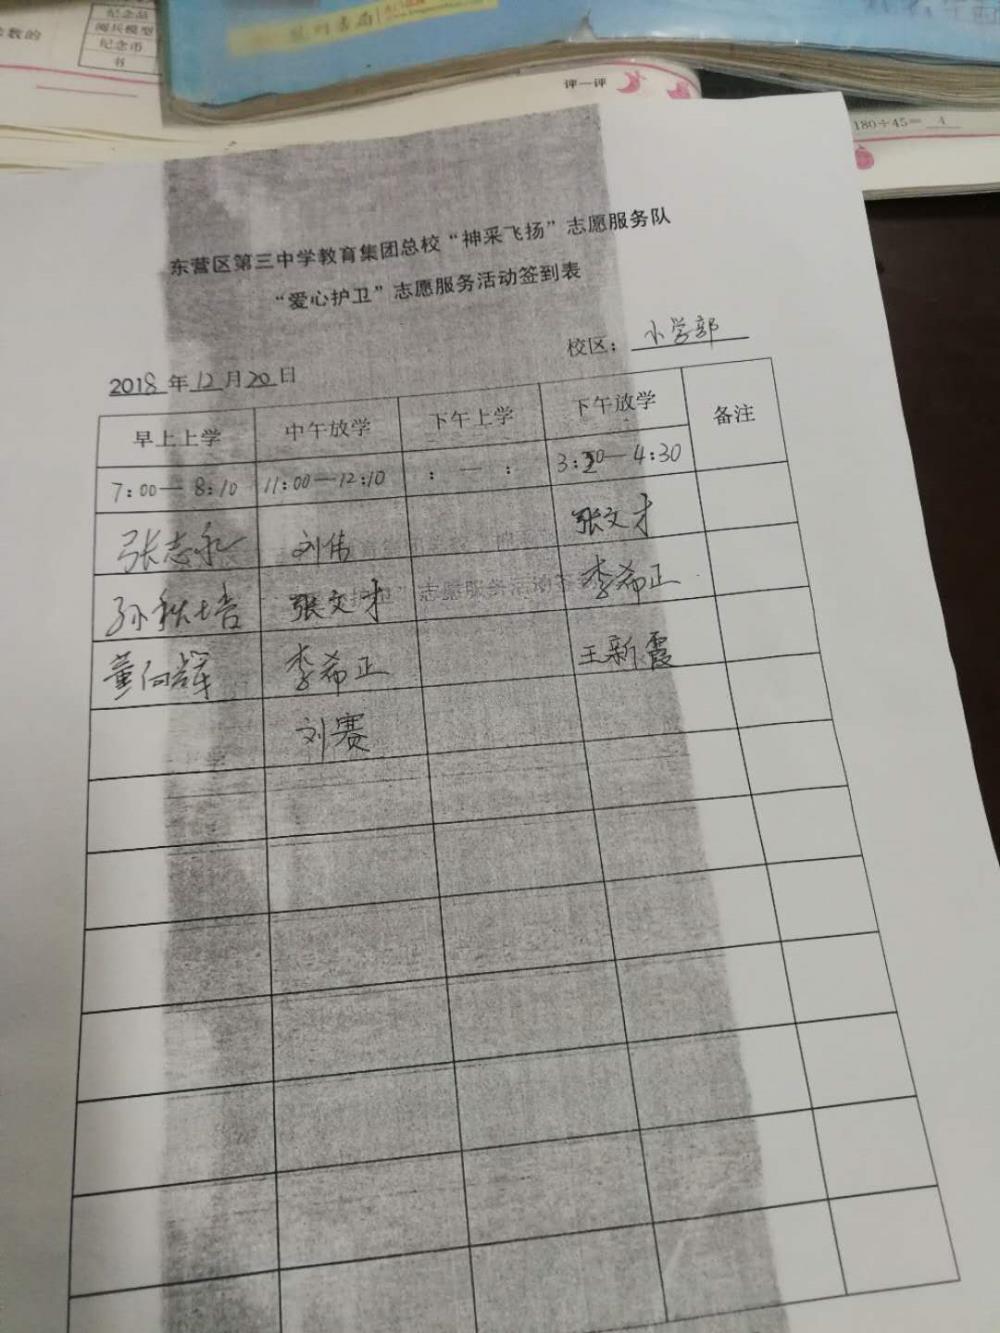 纪念品
阅兵模型
纪念币
书
数的
评一评
180÷45= 4
东营区第三中学教育集团总校“神采飞扬”志愿服务队
“爱心护卫”志愿服务活动签到表
校区：小学部
2018年12月20日
早上上学 中午放学 下午上学 下午放学 备注
7:00—8:10 11:00—12:10 : — : 3:20—4:30
张志永 刘伟 张文才
孙秋培 张文才 李希正
董向辉 李希正 王新霞
刘赛